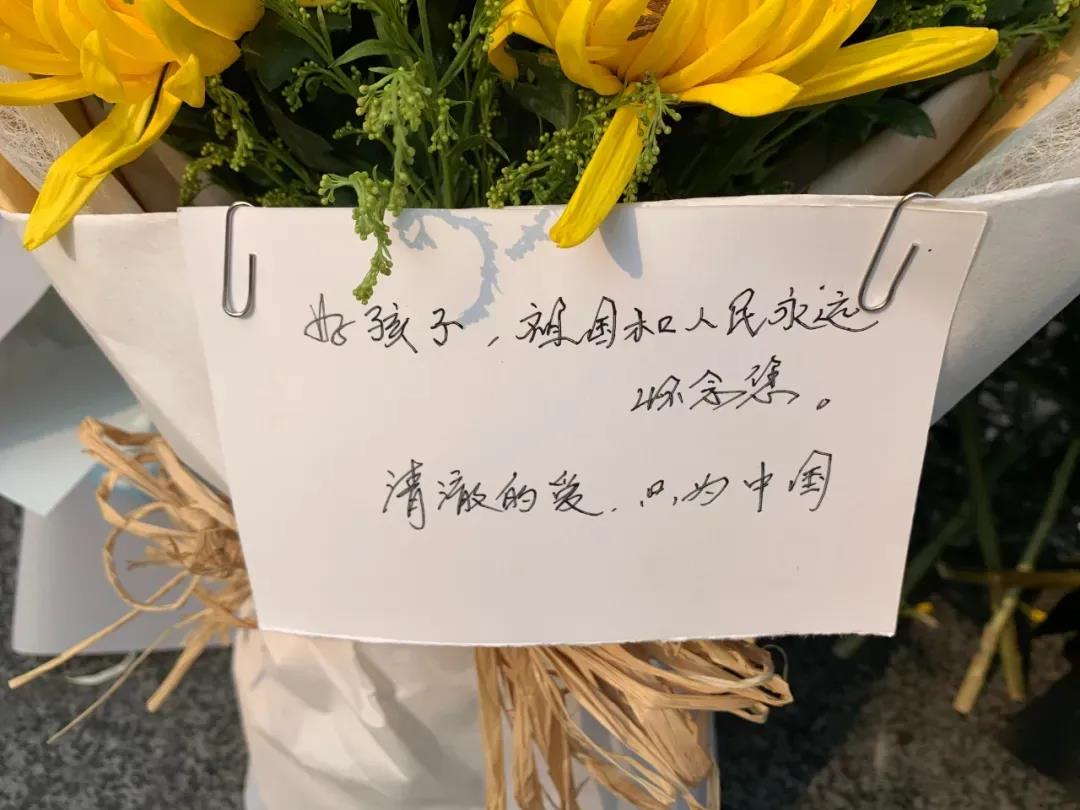 好孩子,祖国和人民永远
怀念您。
清澈的爱.只为中国